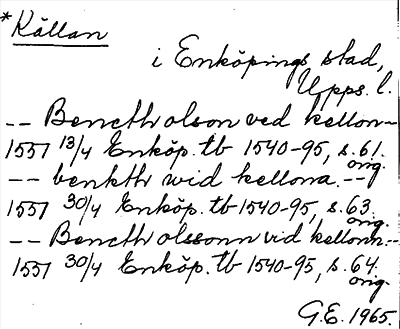 *Källan
i Enköpings stad,
Upps. l.
-- Bencth olson ved kellon--
1557 13/4 Enköp. tb 1540-95, s. 61.
orig.
-- benkth wid kellona.--
1557 30/4 Enköp. tb 1540-95, s. 63.
orig.
-- Bencth olssonn vid kellonn--
1557 30/4 Enköp. tb 1540-95, s. 64.
orig.
G.E. 1965.